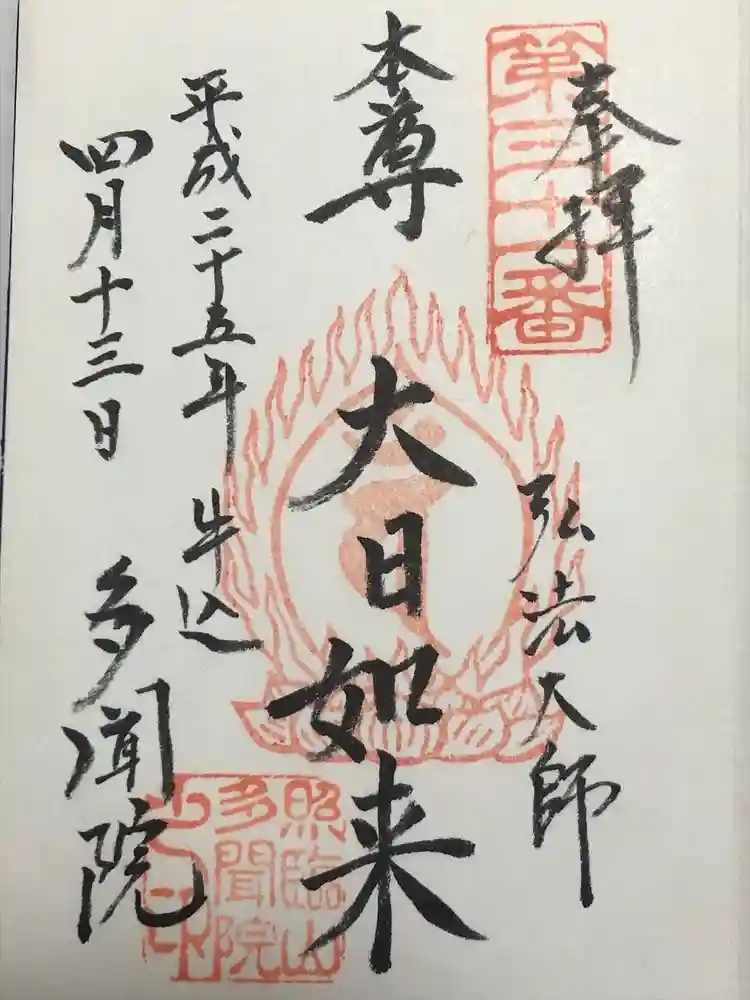 奉拝
弘法大師
本尊
大日如来
平成二十五年
四月十三日
牛込
多聞院
照臨山
多聞院
之印